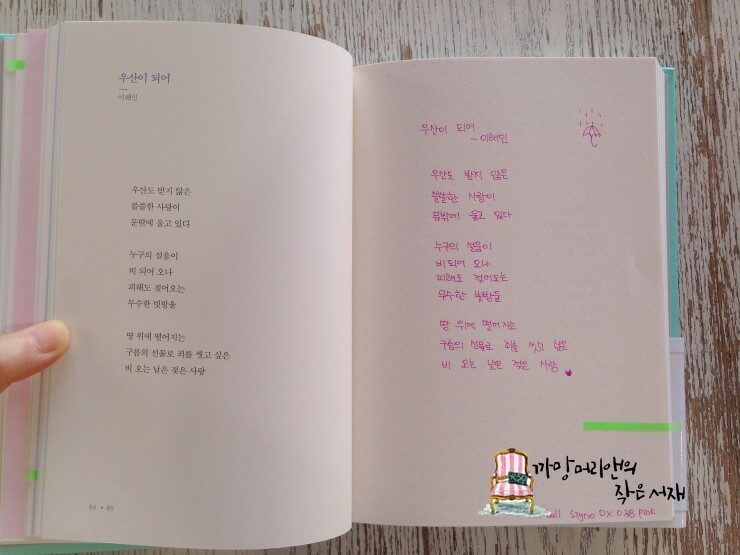 우산이 되어
이해인
우산도 받지 않은
쓸쓸한 사랑이
문밖에 울고 있다
누구의 설움이
비 되어 오나
피해도 젖어오는
무수한 빗방울
땅 위에 떨어지는
구름의 선물로 죄를 씻고 싶은
비 오는 날은 젖은 사랑
84 • 85
우산이 되어
- 이해인
우산도 받지 않은
쓸쓸한 사랑이
문밖에 울고 있다
누구의 설움이
비 되어 오나
피해도 젖어오는
무수한 빗방울
땅 위에 떨어지는
구름의 선물로 죄를 씻고 싶은
비 오는 날은 젖은 사랑
까망머리앤의
작은서재
Signo DX 0.38